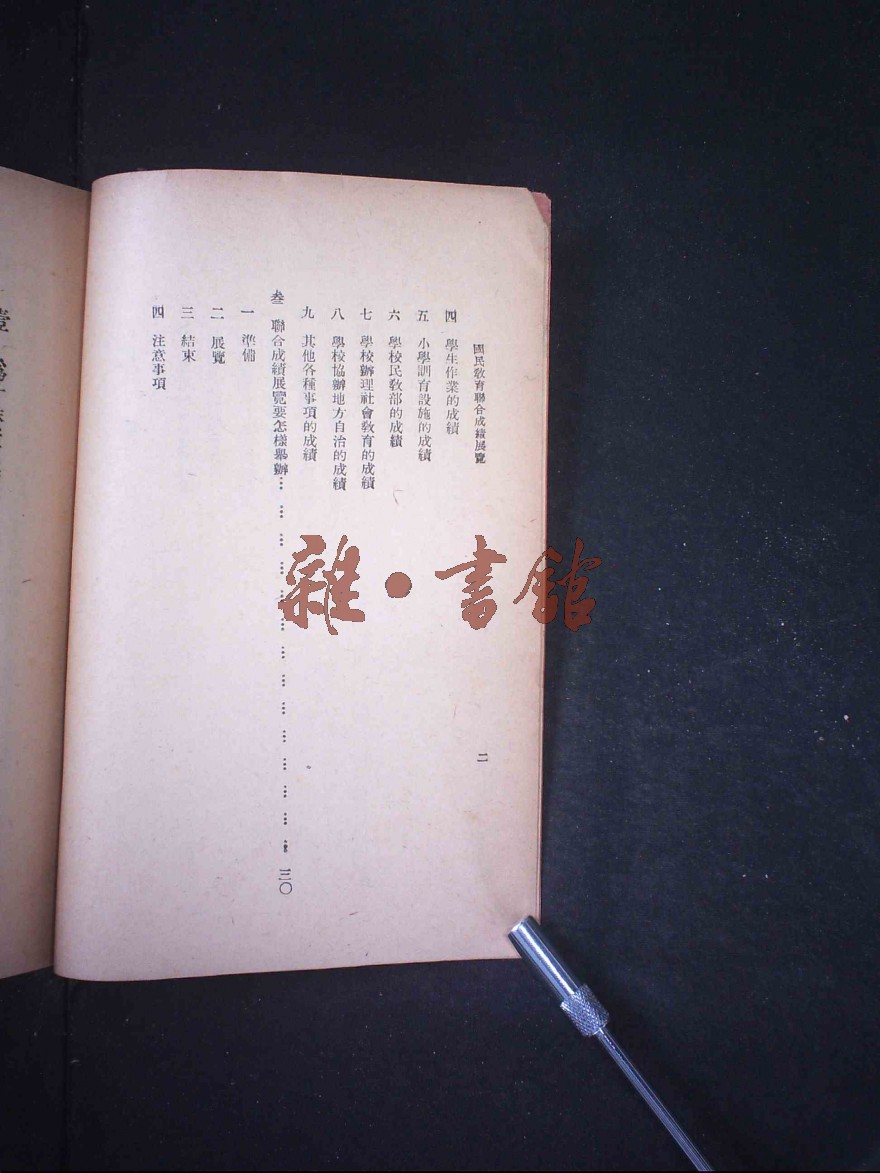 國民敎育聯合成績展覽
二
四 學生作業的成績
五 小學訓育設施的成績
六 學校民敎部的成績
七 學校辦理社會敎育的成績
八 學校協辦地方自治的成績
九 其他各種事項的成績
叁 聯合成績展覽要怎樣舉辦……………………………………三〇
一 準備
二 展覽
三 結束
四 注意事項
壹
雜·書館